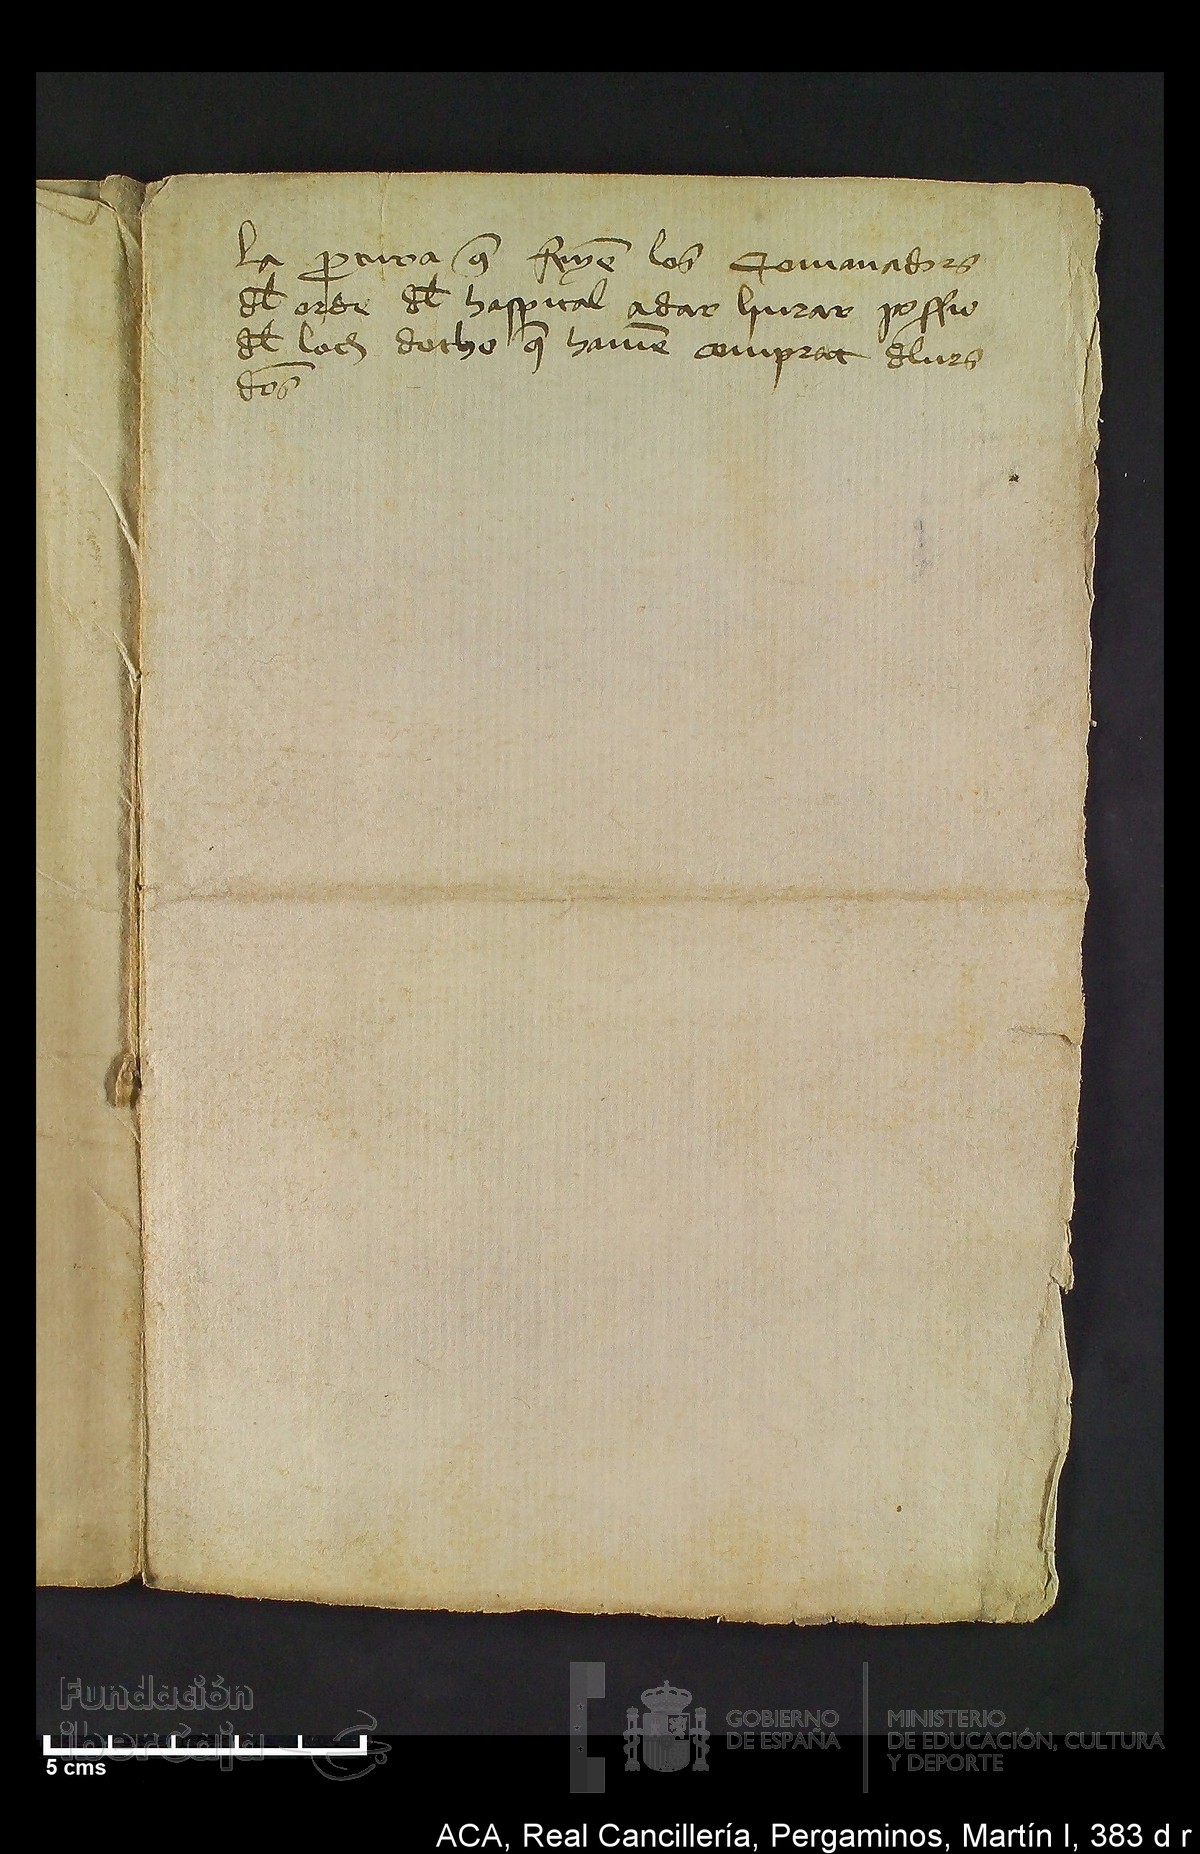 La pcura q̃ feyẽ los Comanadors
dł orde dł haspital a dar liurar possio
dł loch dotho q̃ hauiẽ comprat dlurs
dos
Fundación
iberCaja
5 cms
GOBIERNO
DE ESPAÑA
MINISTERIO
DE EDUCACIÓN, CULTURA
Y DEPORTE
ACA, Real Cancillería, Pergaminos, Martín I, 383 d r